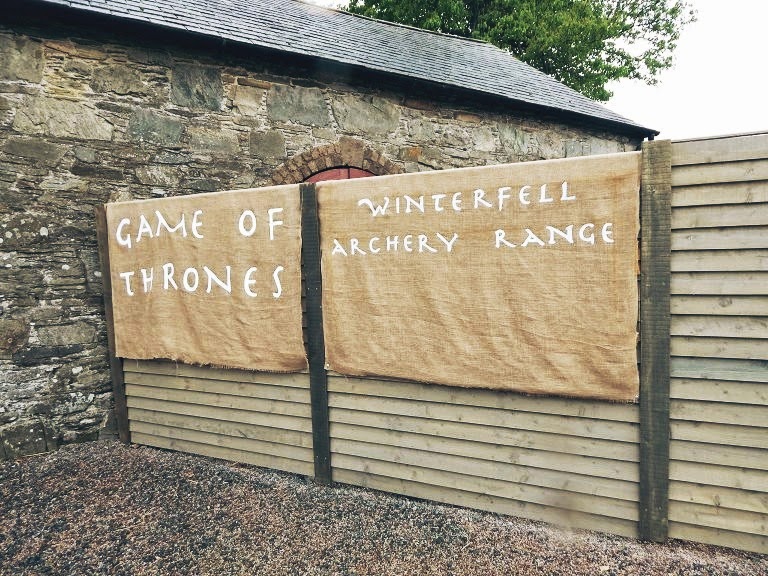 GAME OF
THRONES
WINTERFELL
ARCHERY RANGE